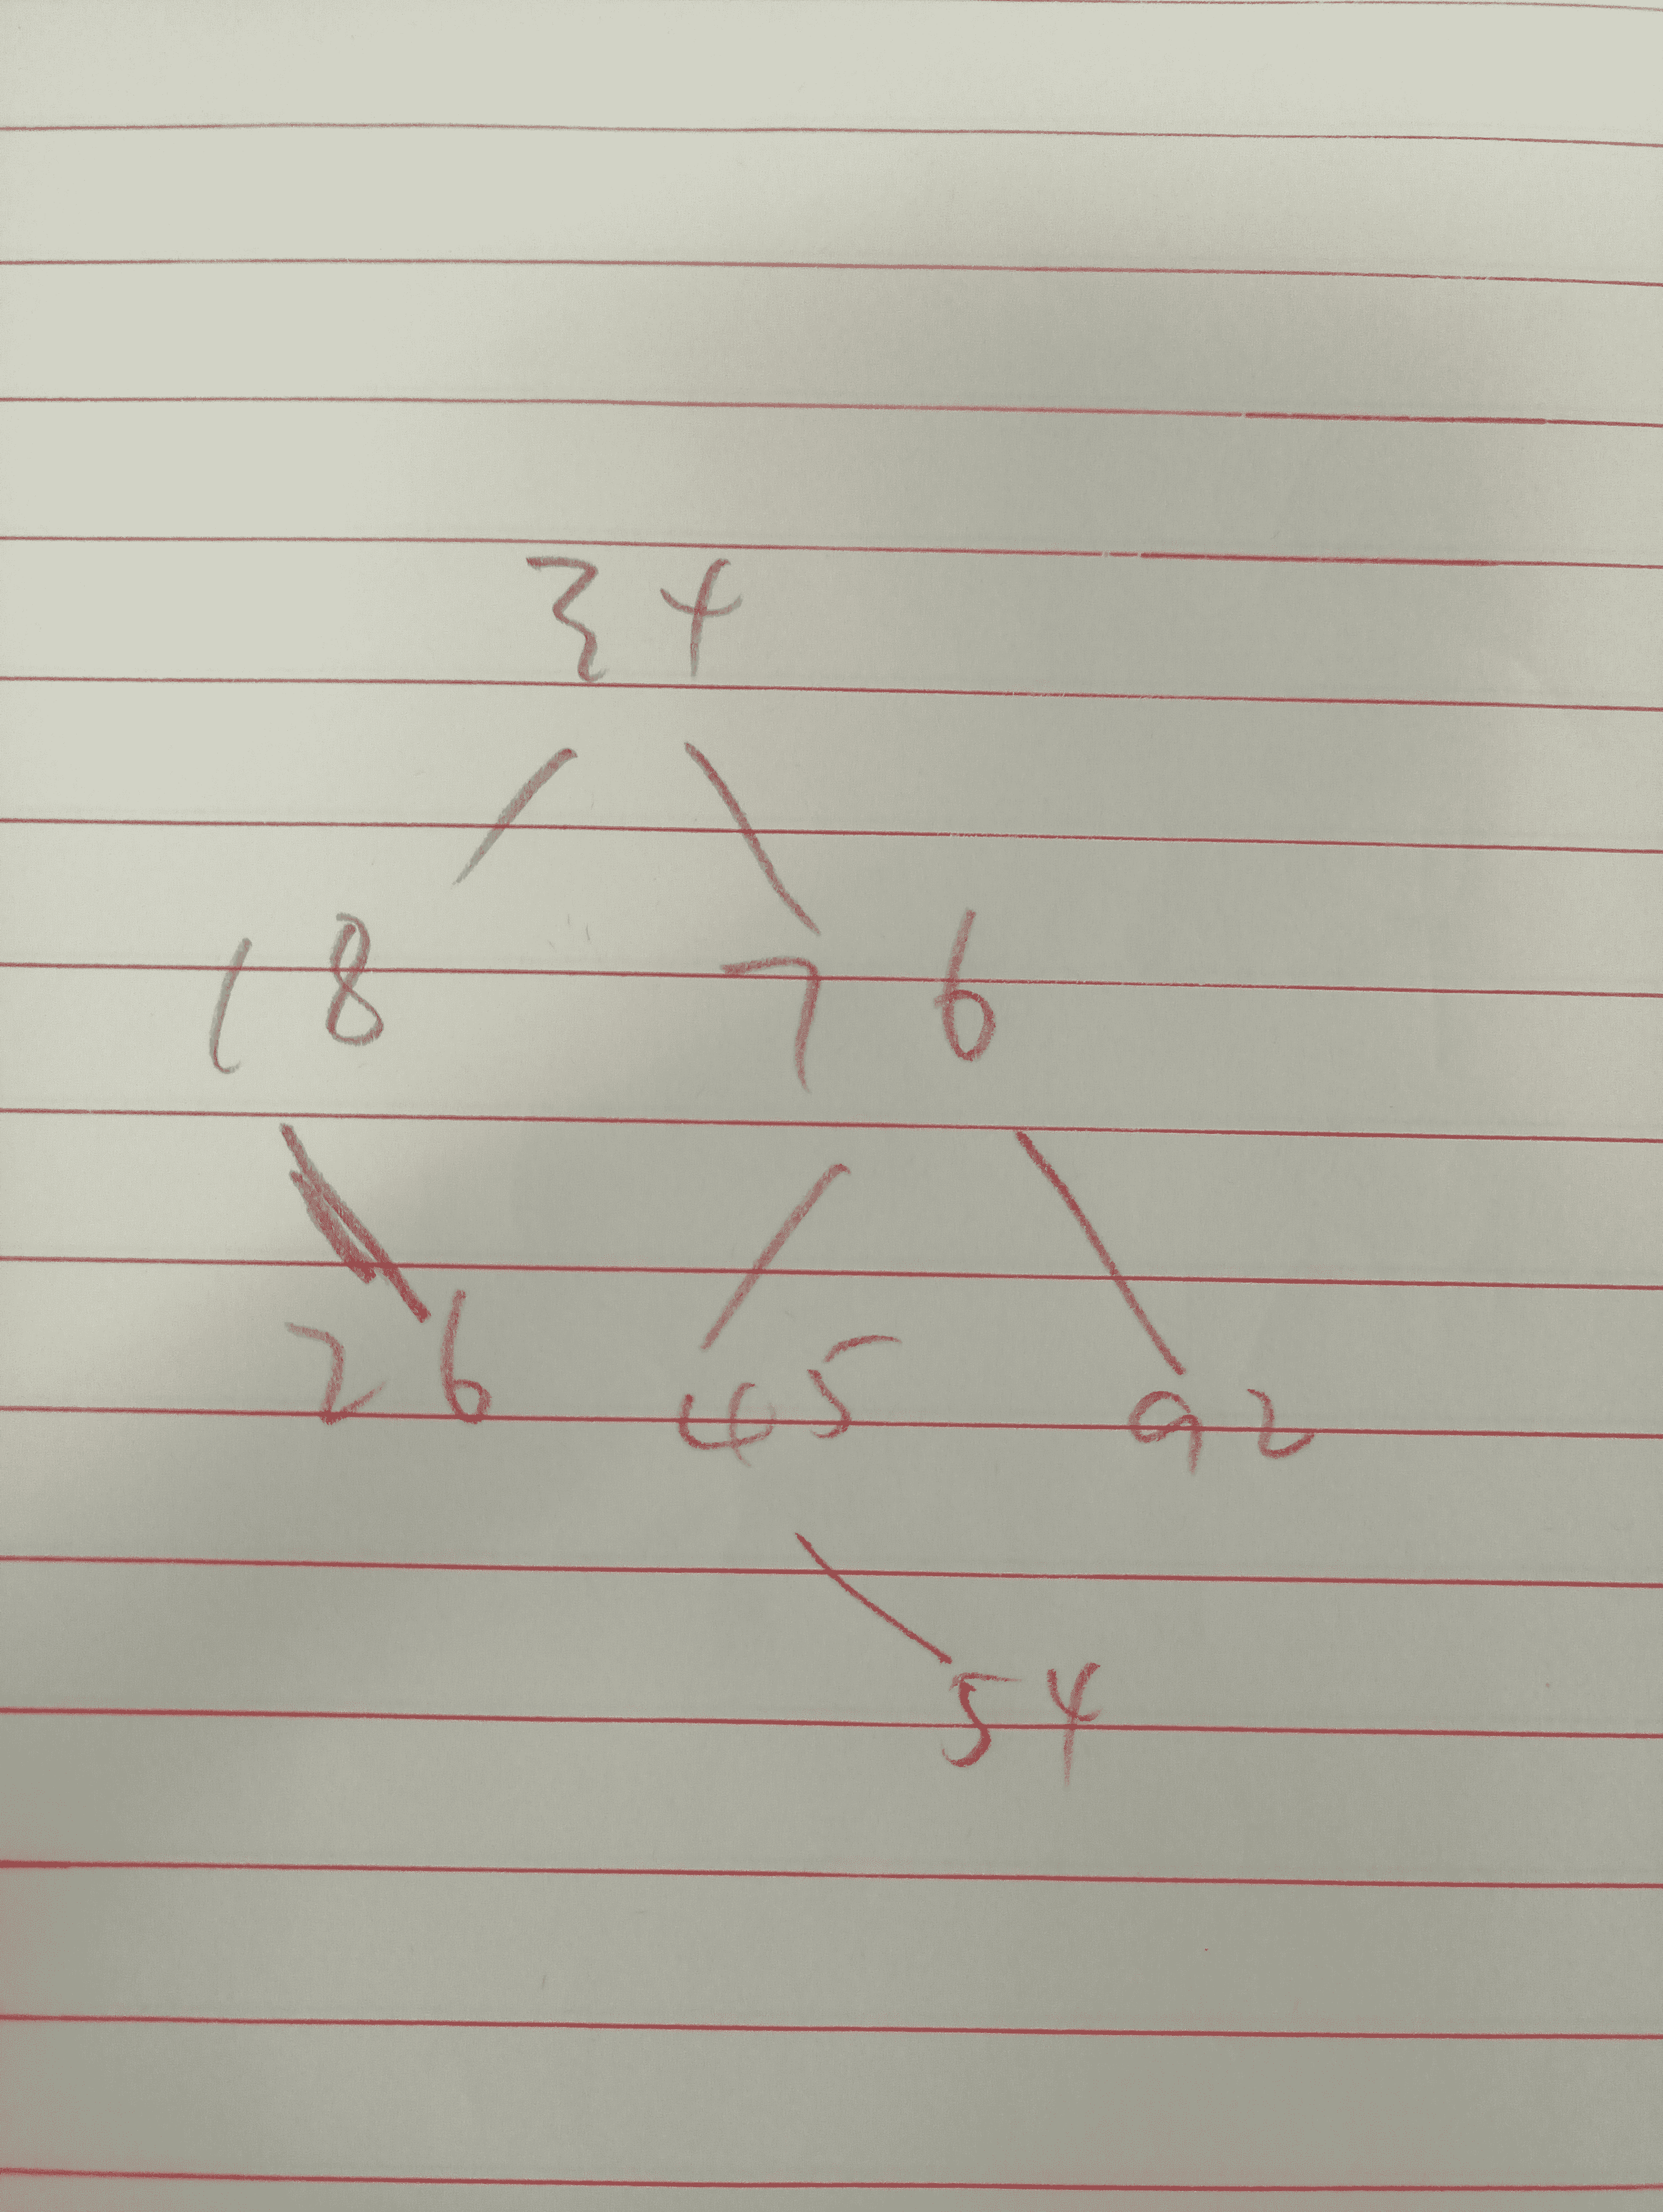 34
18 76
26 45 92
54